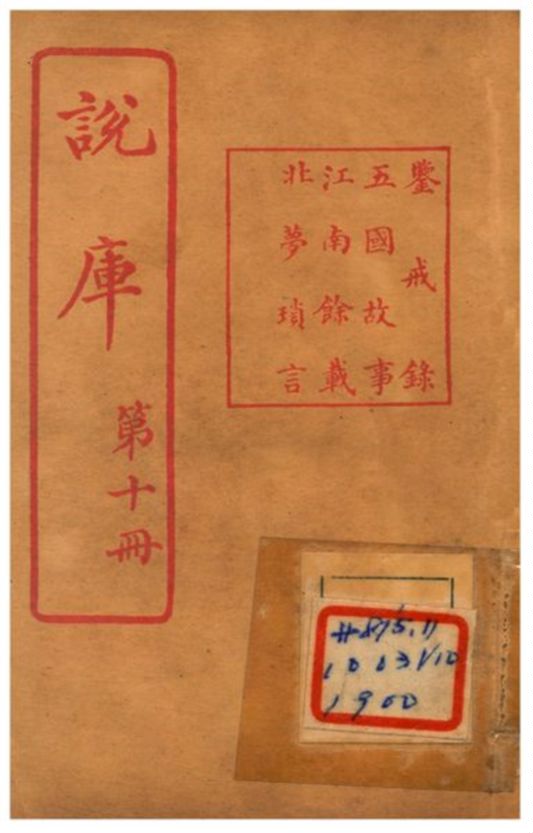 說庫
第十冊
鑒戒錄
五國故事
江南餘載
北夢瑣言
#895.11
1013V10
1900